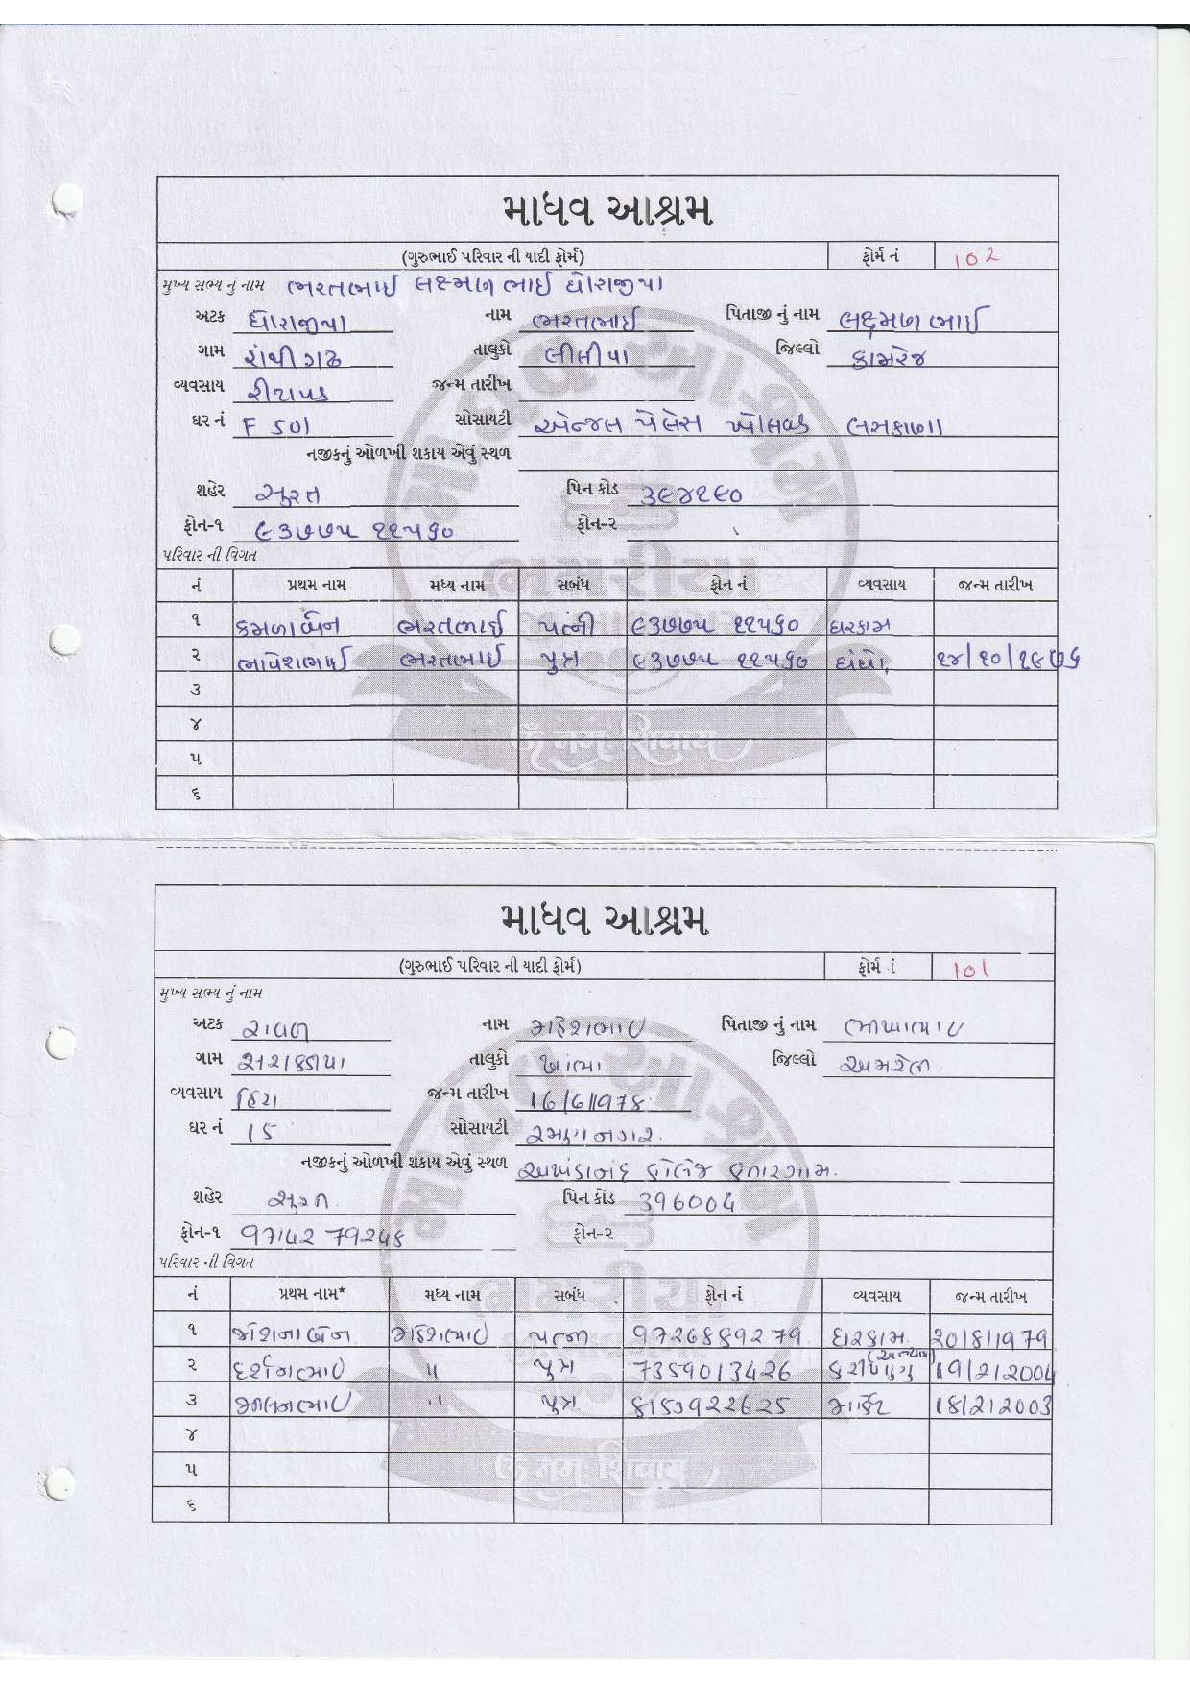 માધવ આશ્રમ
(ગુરુભાઈ પરિવાર ની યાદી ફોર્મ) ફોર્મ નં 102
મુખ્ય સભ્ય નું નામ ભરતભાઈ લક્ષ્મણ ભાઈ ધોરાજીયા
અટક ધોરાજીયા નામ ભરતભાઈ પિતાજી નું નામ લક્ષ્મણ ભાઈ
ગામ રાંધીગઢ તાલુકો લીલીયા જિલ્લો કામરેજ
વ્યવસાય રીટાયડ જન્મ તારીખ
ઘર નં F 501 સોસાયટી એન્જલ પેલેસ ખોલવડ લસકાણા
નજીકનું ઓળખી શકાય એવું સ્થળ
શહેર સુરત પિન કોડ ૩૯૪૧૯૦
ફોન-૧ ૯૩૭૭૫ ૧૧૫૬૦ ફોન-૨
પરિવાર ની વિગત
નં પ્રથમ નામ મધ્ય નામ સબંધ ફોન નં વ્યવસાય જન્મ તારીખ
૧ કમળાબેન ભરતભાઈ પત્ની ૯૩૭૭૫ ૧૧૫૬૦ ઘરકામ
૨ ભાવેશભાઈ ભરતભાઈ પુત્ર ૯૩૭૭૫ ૧૧૫૬૦ ધંધો ૧૪/૧૦/૧૯૭૬
૩
૪
૫
૬
ૐ નમઃ શિવાય
માધવ આશ્રમ
(ગુરુભાઈ પરિવાર ની યાદી ફોર્મ) ફોર્મ નં 101
મુખ્ય સભ્ય નું નામ
અટક રાવળ નામ મહેશભાઇ પિતાજી નું નામ ભીખાભાઇ
ગામ તાલુકો ખાંભા જિલ્લો અમરેલી
વ્યવસાય હિરા જન્મ તારીખ
ઘર નં 15 સોસાયટી રમણનગર.
નજીકનું ઓળખી શકાય એવું સ્થળ અખંડાનંદ કોલેજ કતારગામ.
શહેર સુરત. પિન કોડ 396004
ફોન-૧ ફોન-૨
પરિવાર ની વિગત
નં પ્રથમ નામ* મધ્ય નામ સબંધ ફોન નં વ્યવસાય જન્મ તારીખ
૧ જોશનાબેન મહેશભાઇ પત્ની ઘરકામ 20/8/1979
૨ દર્શનભાઇ " પુત્ર 7359013426 (અભ્યાસ) 19/2/2004
૩ " પુત્ર માર્કેટ 18/2/2003
૪
૫
૬
ૐ નમઃ શિવાય